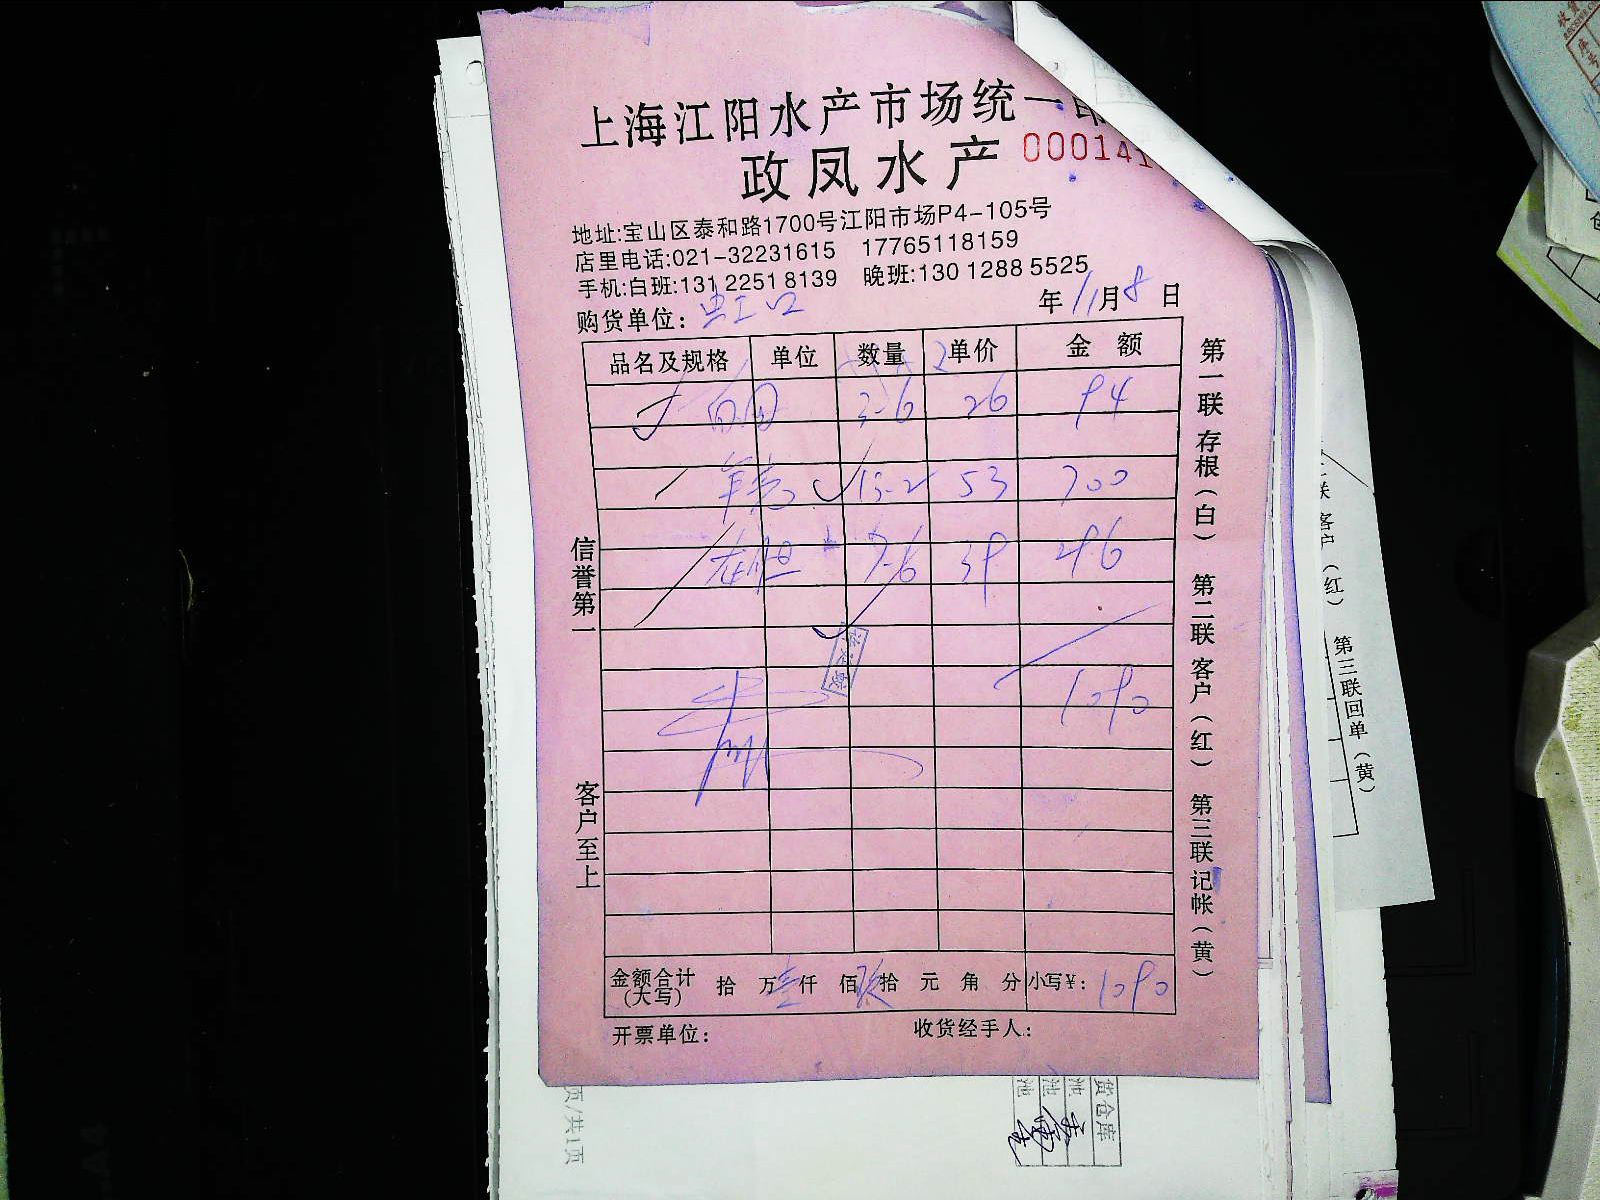 上海江阳水产市场统一印
政凤水产 000141
地址:宝山区泰和路1700号江阳市场P4-105号
店里电话:021-32231615 17765118159
手机:白班:131 2251 8139 晚班:130 1288 5525
购货单位: 虹口 年 11 月 8 日
品名及规格 单位 数量 单价 金额
3-6 26 94
13-2 53 700
龙胆 7-6 39 296
1090
金额合计(大写) 拾 万 壹 仟 佰 玖 拾 元 角 分 小写¥: 1090
开票单位: 收货经手人:
信誉第一
客户至上
第一联 存根(白) 第二联 客户(红) 第三联 记帐(黄)
联 客户(红) 第三联 回单(黄)
货仓库
页/共1页